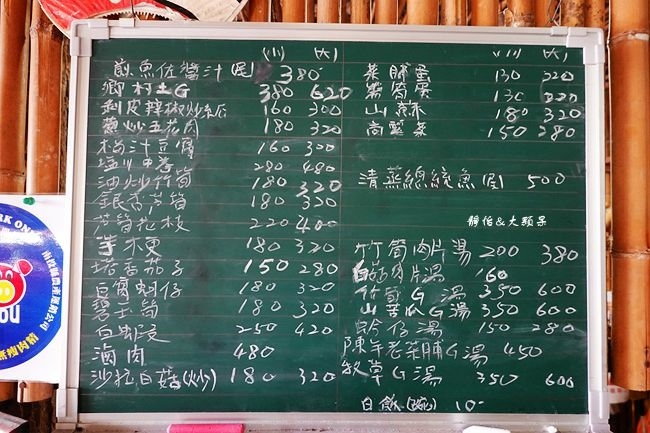 (小) (大)
煎魚佐醬汁(尾) 380
鄉村土G 380 620
剝皮辣椒炒 160 300
蔥炒五花肉 180 320
汁豆腐 160 320
塩 中卷 280 480
油炒竹筍 180 320
銀 筍 180 320
筍花枝 220 400
木 180 320
塔香茄子 150 280
豆腐蚵仔 180 320
碧玉筍 180 320
白蝦 250 420
滷肉 480
沙拉白菇(炒) 180 320
(小) (大)
菜脯蛋 130 220
蛋 130 220
山蘇 180 320
高麗菜 150 280
清蒸總統魚(尾) 500
靜怡&大顆呆
竹筍肉片湯 200 380
肉片湯 160
竹筍G湯 350 600
山苦瓜G湯 350 600
蛤仔湯 150 280
陳年老菜脯G湯 450
草G湯 350 600
白飯(碗) 10